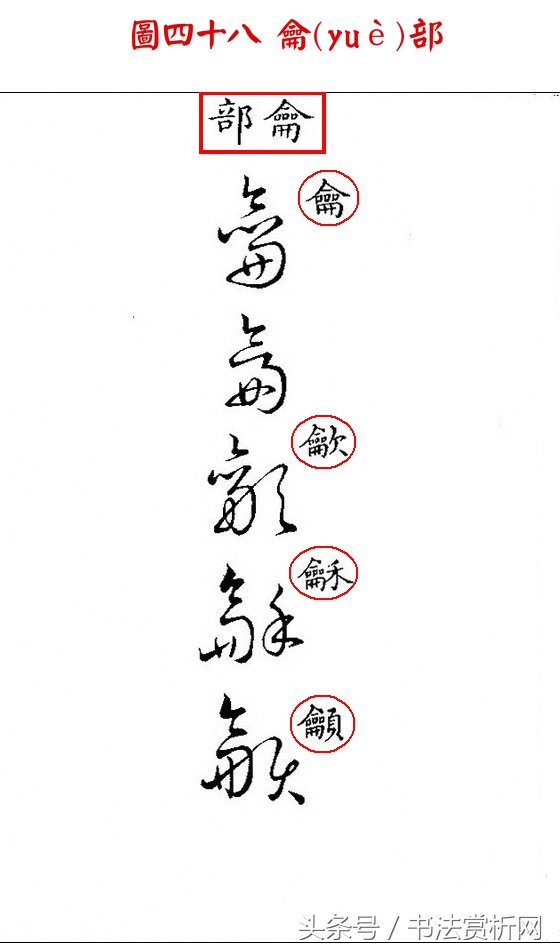 圖四十八 龠(yuè)部
龠部
龠
龡
龢
籲
头条号 / 书法赏析网